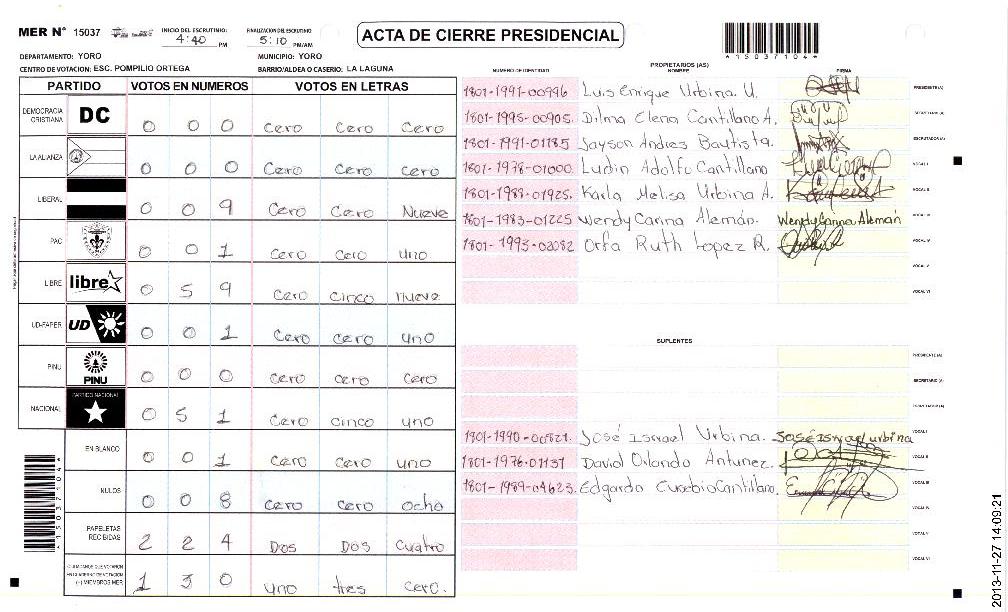 MER N° 15037 INICIO DEL ESCRUTINIO: 4:40 PM FINALIZACION DEL ESCRUTINIO: 5:10 PM/AM
ACTA DE CIERRE PRESIDENCIAL
*15037104*
DEPARTAMENTO: YORO MUNICIPIO: YORO
CENTRO DE VOTACION: ESC. POMPILIO ORTEGA BARRIO/ALDEA O CASERIO: LA LAGUNA
PARTIDO VOTOS EN NUMEROS VOTOS EN LETRAS
DEMOCRACIA CRISTIANA DC 0 0 0 Cero Cero Cero
LA ALIANZA 0 0 0 Cero Cero Cero
LIBERAL 0 0 9 Cero Cero Nueve
PAC 0 0 1 Cero Cero uno
LIBRE libre 0 5 9 Cero Cinco nueve
UD-FAPER UD 0 0 1 Cero Cero uno
PINU PINU 0 0 0 Cero Cero Cero
NACIONAL PARTIDO NACIONAL 0 5 1 Cero cinco uno
EN BLANCO 0 0 1 Cero Cero uno
NULOS 0 0 8 Cero Cero ocho
PAPELETAS RECIBIDAS 2 2 4 Dos Dos Cuatro
CIUDADANOS QUE VOTARON EN CUADERNO DE VOTACION (+) MIEMBROS MER 1 3 0 uno tres cero.
*15037104*
PROPIETARIOS (AS)
NUMERO DE IDENTIDAD NOMBRE FIRMA
1801-1991-00996 Luis Enrique Urbina. U. PRESIDENTE(A)
1801-1995-00905. Dilma Elena Cantillano A. SECRETARIO (A)
1801-1991-01185 Jayson Andres Bautista. ESCRUTADOR(A)
1801-1978-01000. Ludin Adolfo Cantillano VOCAL I
1801-1988-01925. Karla Melisa Urbina A. VOCAL II
1801-1983-01225 Wendy Carina Alemán. Wendy Carina Alemán VOCAL III
1801-1995-02082 Orfa Ruth Lopez R. VOCAL IV
VOCAL V
VOCAL VI
SUPLENTES
PRESIDENTE (A)
SECRETARIO (A)
ESCRUTADOR (A)
1801-1990-00821. José Ismael Urbina. José Ismael urbina VOCAL I
1801-1976-01137 David Orlando Antunez. VOCAL II
1801-1989-04623. Edgardo Eusebio Cantillano. VOCAL III
VOCAL IV
VOCAL V
VOCAL VI
2013-11-27 14:09:21